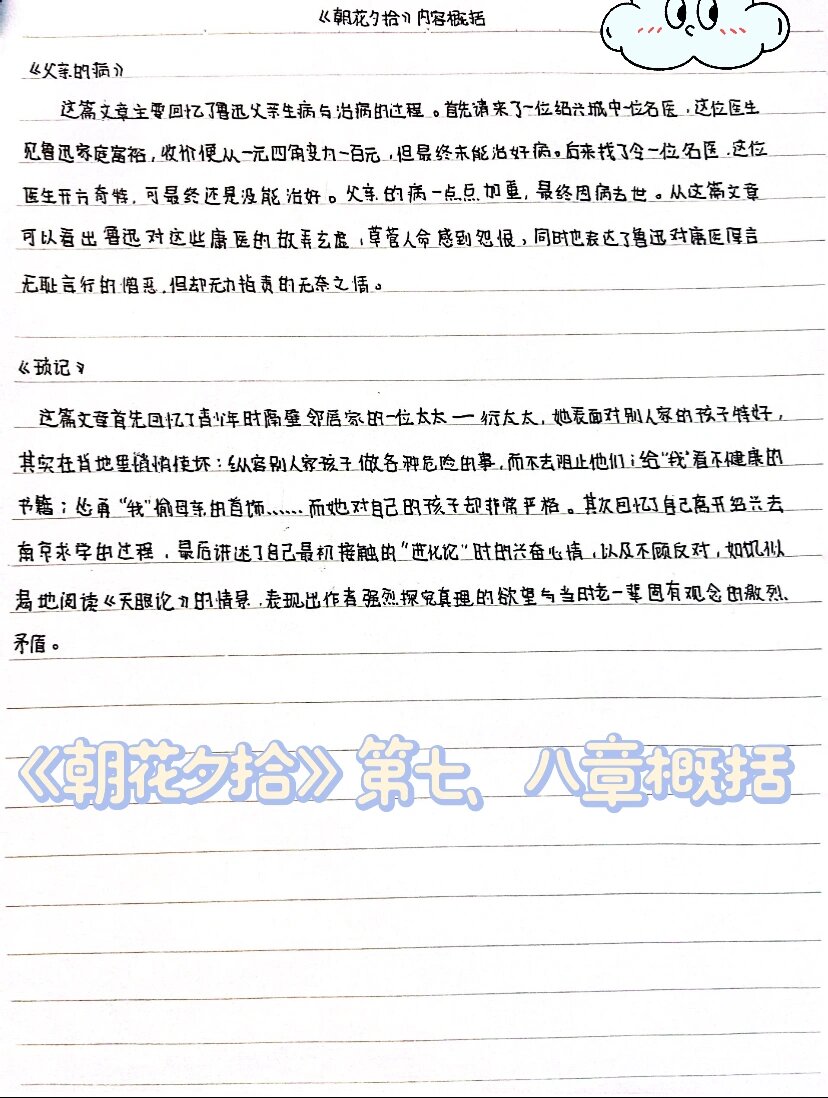 《朝花夕拾》内容概括
《父亲的病》
这篇文章主要回忆了鲁迅父亲生病与治病的过程。首先请来了一位绍兴城中一位名医，这位医生
见鲁迅家庭富裕，收价便从一元四角变为一百元，但最终未能治好病。后来找了令一位名医，这位
医生开方奇特，可最终还是没能治好。父亲的病一点点加重，最终因病去世。从这篇文章
可以看出鲁迅对这些庸医的故弄玄虚，草菅人命感到怨恨，同时也表达了鲁迅对庸医厚言
无耻言行的憎恶，但却无力指责的无奈之情。
《琐记》
这篇文章首先回忆了青少年时隔壁邻居家的一位太太一衍太太，她表面对别人家的孩子特好，
其实在背地里悄悄使坏：纵容别人家孩子做各种危险的事，而不去阻止他们；给“我”看不健康的
书籍；怂勇“我”偷母亲的首饰……而她对自己的孩子却非常严格。其次回忆了自己离开绍兴去
南京求学的过程，最后讲述了自己最初接触的“进化论”时的兴奋心情，以及不顾反对，如饥似
渴地阅读《天眼论》的情景，表现出作者强烈探究真理的欲望与当时老一辈固有观念的激烈、
矛盾。
《朝花夕拾》第七、八章概括